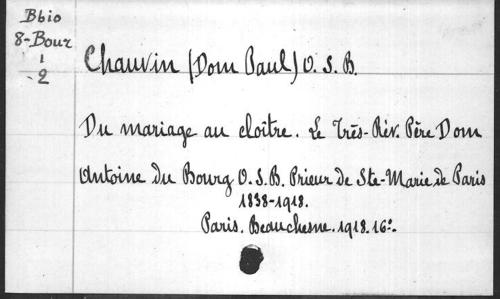 Bbio
8-Bour
1
-2
Chauvin (Dom Paul) O. S. B.
Du mariage au cloître. Le Très-Rév. Père Dom
Antoine du Bourg O. S. B. Prieur de Ste-Marie de Paris
1838-1918.
Paris. Beauchesne. 1918. 16º.